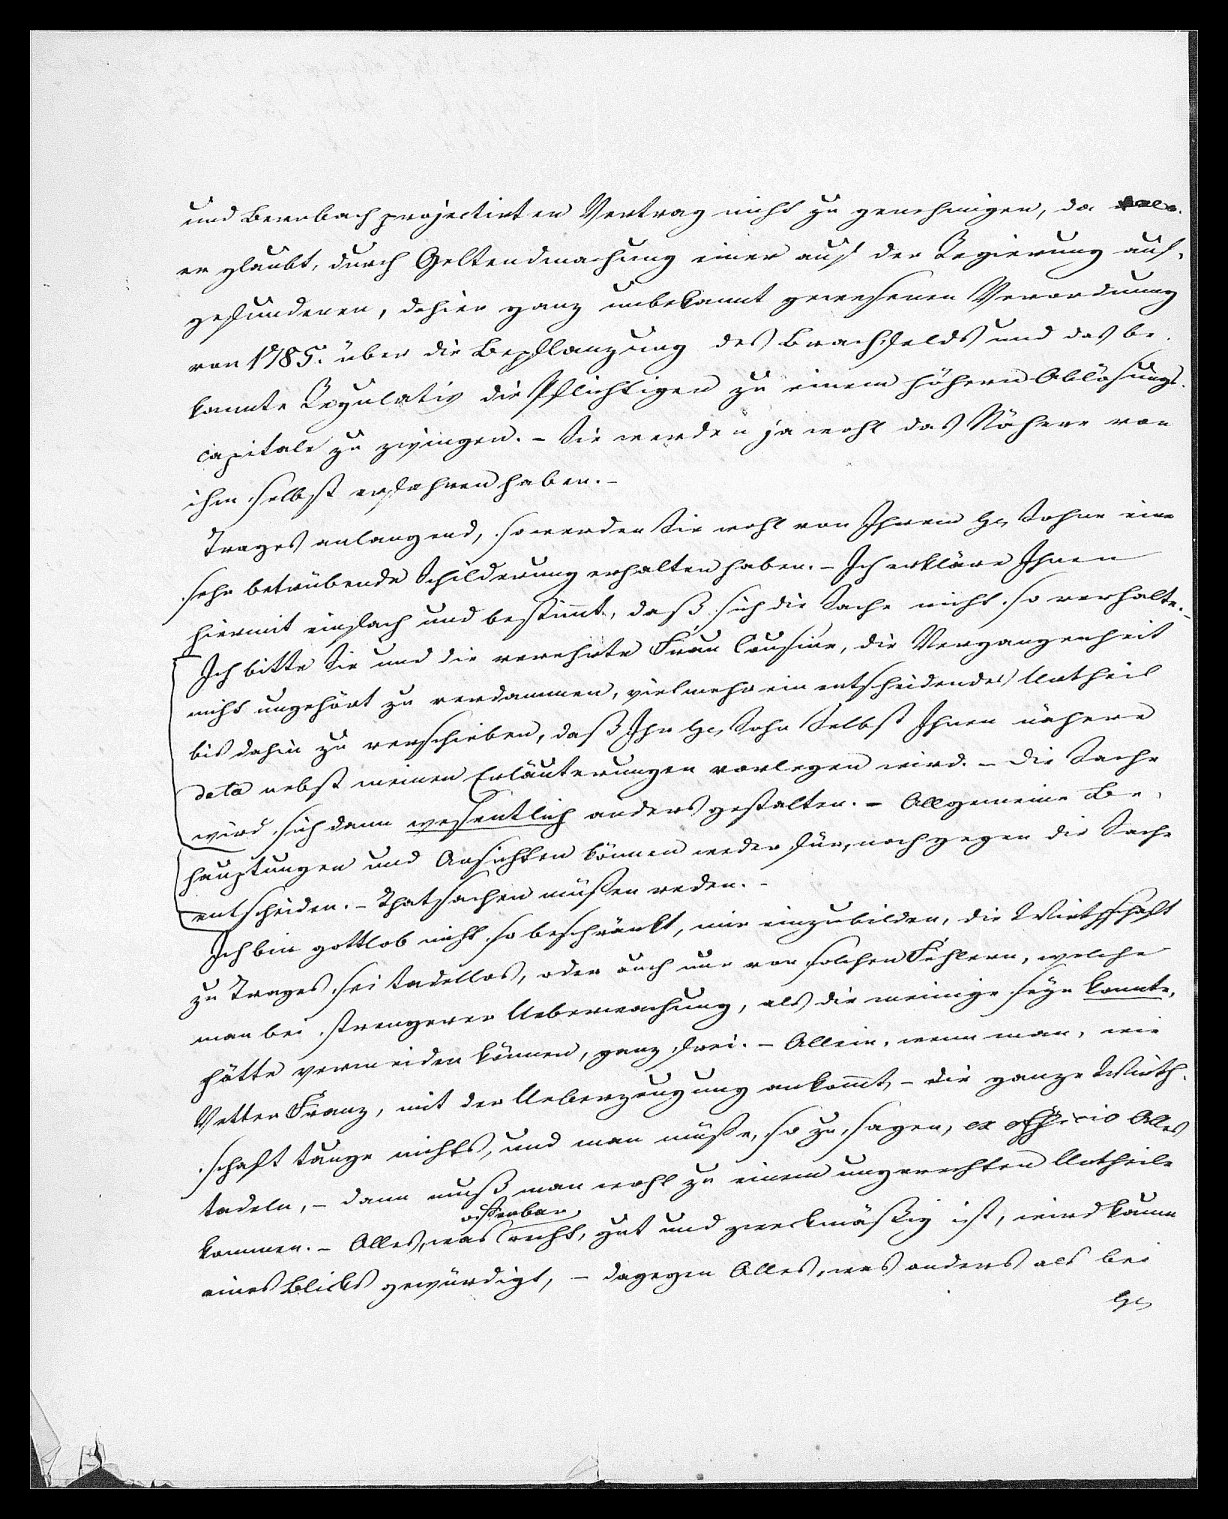 und Bernbach projectirten Vertrag nicht zu genehmigen, da
er glaubt, durch Geltendmachung einer auf der Regierung auf-
gefundenen, dahier ganz unbekannt gewesenen Verordnung
von 1785. über die Bepflanzung des Brachfelds und das be-
kannte Regulativ die Pflichtigen zu einem höhern Ablösungs-
capitale zu zwingen. – Sie werden ja wohl das Nähere von
ihm selbst erfahren haben. –
Trages anlangend, so werden Sie wohl von Ihrem H. Sohne eine
sehr betrübende Schilderung erhalten haben. – Ich erkläre Ihnen
hiermit einfach und bestimmt, daß sich die Sache nicht so verhalte. –
Ich bitte Sie und die verehrte Frau Cousine, die Vergangenheit
nicht ungehört zu verdammen, vielmehr ein entscheidendes Urtheil
bis dahin zu verschieben, daß Ihr H. Sohn Selbst Ihnen nähere
data nebst meinen Erläuterungen vorlegen wird. – Die Sache
wird sich dann wesentlich anders gestalten. – Allgemeine Be-
hauptungen und Ansichten können weder für, noch gegen die Sache
entscheiden. – Thatsachen müßen reden. –
Ich bin gottlob nicht so beschränkt, mir einzubilden, die Wirthschaft
zu Trages sei tadellos, oder auch nur von solchen Fehlern, welche
man bei strengerer Ueberwachung, als die meinige seyn konnte,
hätte vermeiden können, ganz frei. – Allein, wenn man, wie
Vetter Franz, mit der Ueberzeugung ankommt, – die ganze Wirth-
schaft tauge nichts, und man müße, so zu sagen, ex officio Alles
tadeln, – dann muß man wohl zu einem ungerechten Urtheile
kommen. – Alles, was offenbar recht, gut und zweckmäßig ist, wird kaum
eines Blicks gewürdigt, – dagegen Alles, was anders als bei
H.